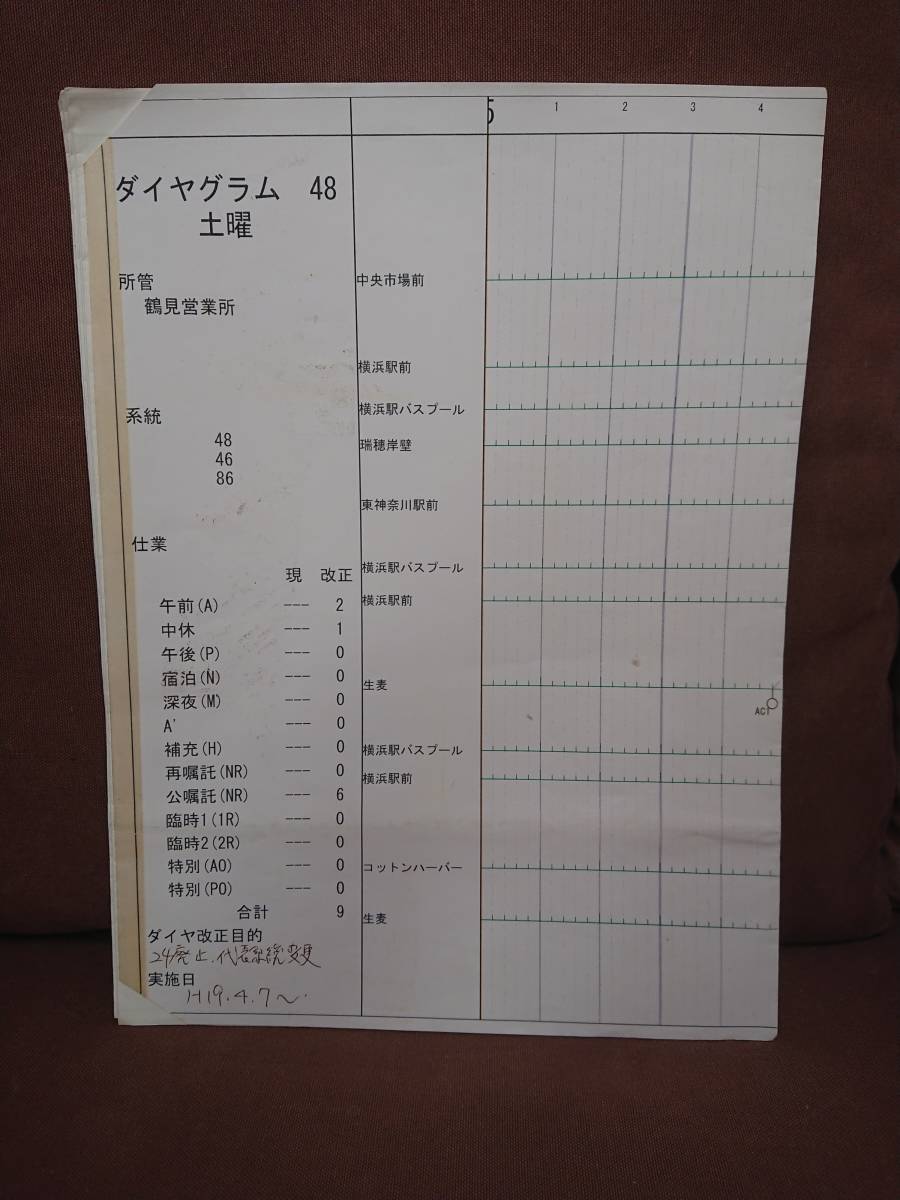 5 1 2 3 4
ダイヤグラム 48
土曜
所管
鶴見営業所
系統
48
46
86
仕業
現 改正
午前(A) --- 2
中休 --- 1
午後(P) --- 0
宿泊(N) --- 0
深夜(M) --- 0
A' --- 0
補充(H) --- 0
再嘱託(NR) --- 0
公嘱託(NR) --- 6
臨時1(1R) --- 0
臨時2(2R) --- 0
特別(AO) --- 0
特別(PO) --- 0
合計 9
ダイヤ改正目的
24廃止、代表系統変更
実施日
H19.4.7〜.
中央市場前
横浜駅前
横浜駅バスプール
瑞穂岸壁
東神奈川駅前
横浜駅バスプール
横浜駅前
生麦
横浜駅バスプール
横浜駅前
コットンハーバー
生麦
AC1